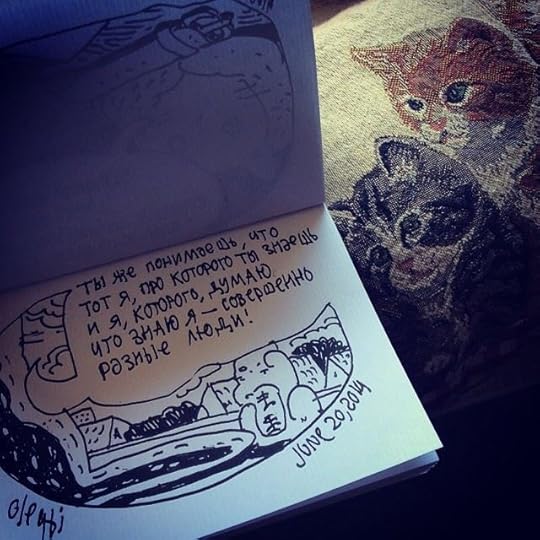 ты же понимаешь, что
тот я, про которого ты знаешь
и я, которого, думаю,
что знаю я — совершенно
разные люди!
June 20, 2014